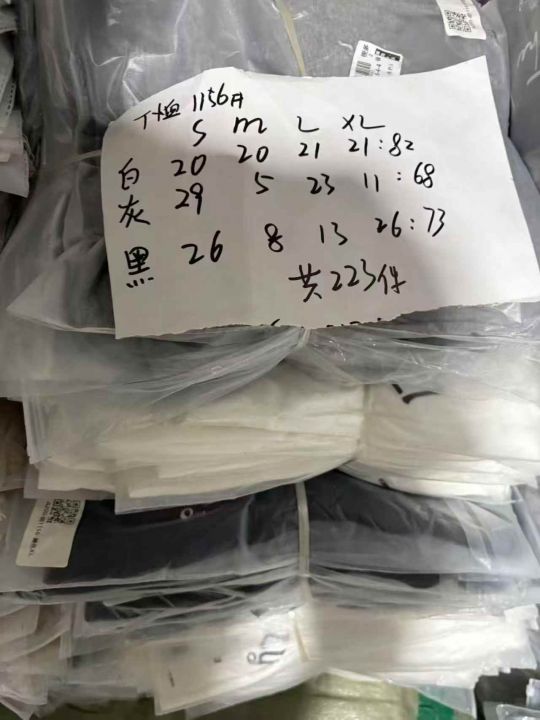 T恤 1156#
S M L XL
白 20 20 21 21:82
灰 29 5 23 11:68
黑 26 8 13 26:73
共223件